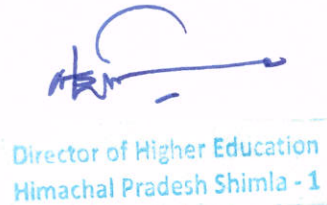 Director of Higher Education
Himachal Pradesh Shimla - 1